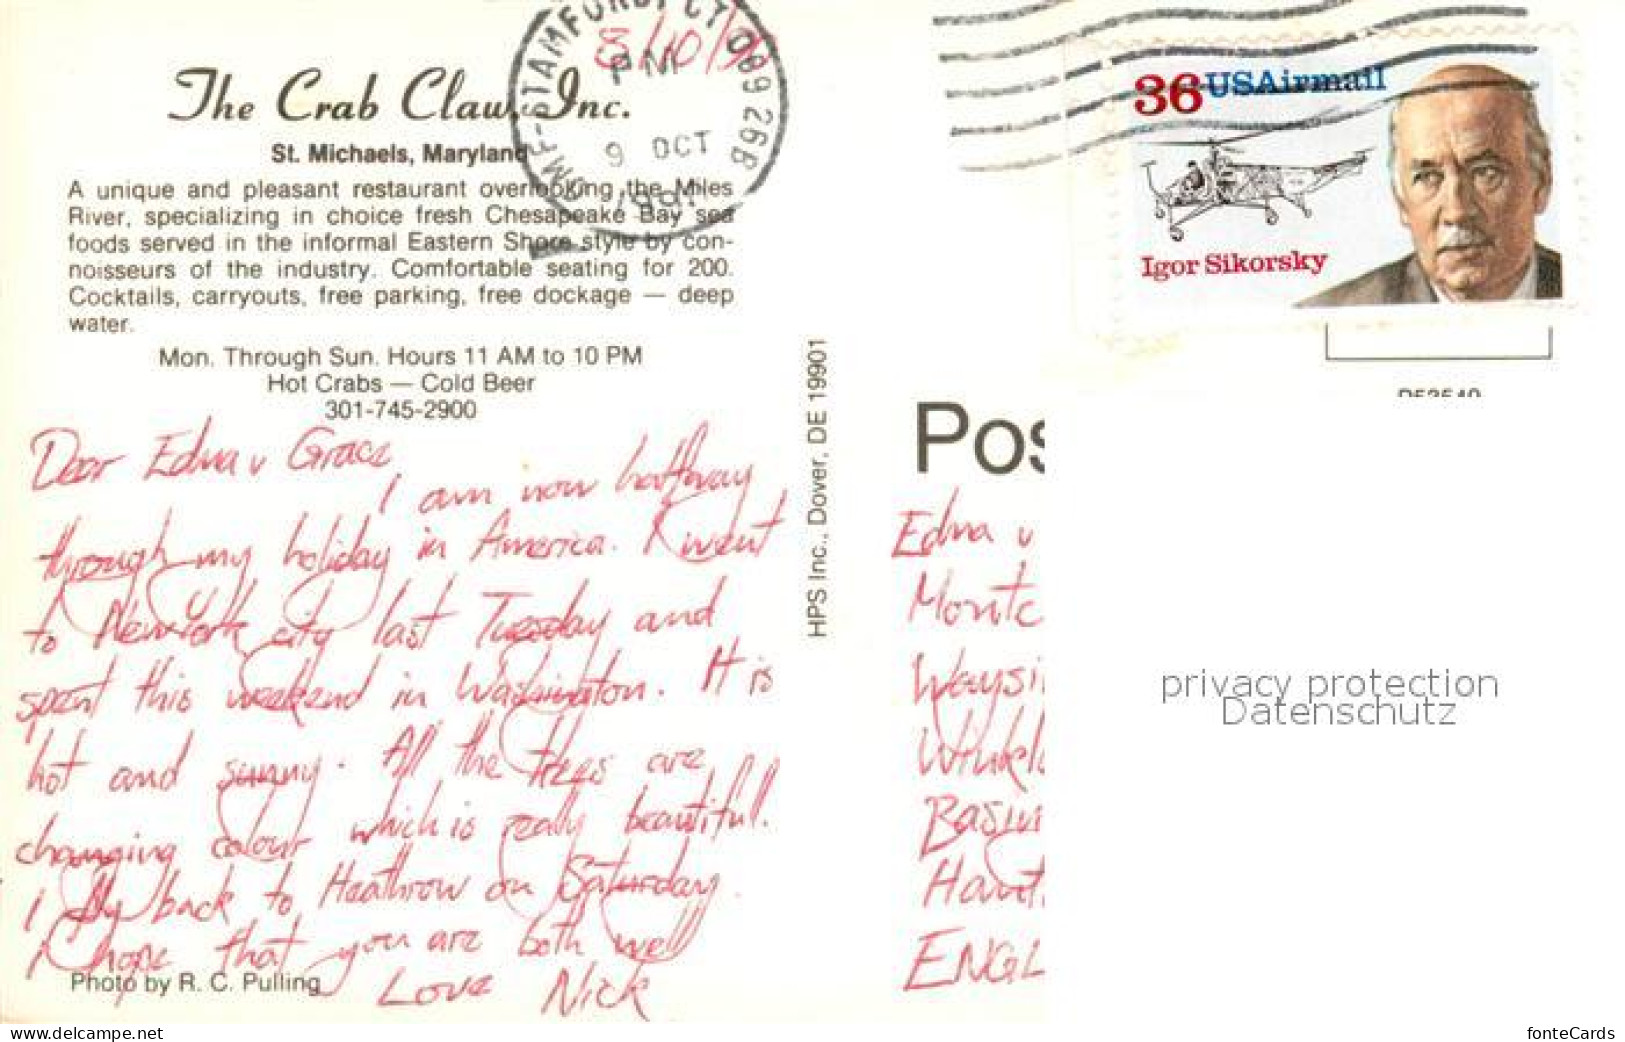 The Crab Claw, Inc.
St. Michaels, Maryland
A unique and pleasant restaurant overlooking the Miles
River, specializing in choice fresh Chesapeake Bay sea
foods served in the informal Eastern Shore style by con-
noisseurs of the industry. Comfortable seating for 200.
Cocktails, carryouts, free parking, free dockage — deep
water.
Mon. Through Sun. Hours 11 AM to 10 PM
Hot Crabs — Cold Beer
301-745-2900
Dear Edna v Grace,
I am now halfway
through my holiday in America. I went
to New York city last Tuesday and
spent this weekend in Washington. It is
hot and sunny. All the trees are
changing colour which is really beautiful.
I fly back to Heathrow on Saturday.
I hope that you are both well
Love Nick
Photo by R. C. Pulling
HPS Inc., Dover, DE 19901
PM
9 OCT
36 USAirmail
Igor Sikorsky
Pos
Edna v
Montc
Waysi
Basin
Hant
ENGL
privacy protection
Datenschutz
www.delcampe.net
fonteCards